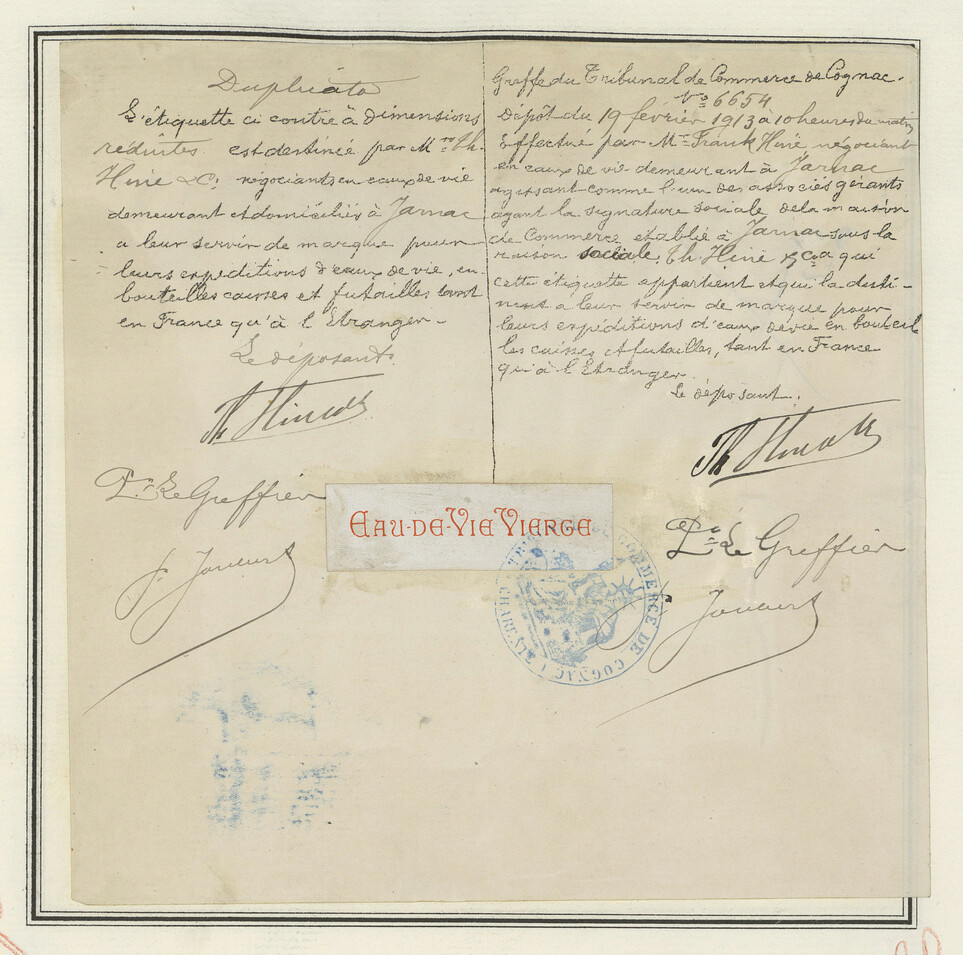 Duplicata
L'étiquette ci contre à dimensions
réduites est destinée par Mrs Th.
Hine & Co négociants en eaux de vie
demeurant et domiciliés à Jarnac
a leur servir de marque pour
leurs expéditions d'eaux de vie, en
bouteilles caisses et futailles tant
en France qu'à l'Etranger -
Le déposant
Th Hine & Co
Pr Le Greffier
Greffe du Tribunal de Commerce de Cognac.
No 6654
Dépôt du 19 février 1913 à 10 heures du matin
Effectué par Mr Frank Hine négociant
en eaux de vie demeurant à Jarnac
agissant comme l'un des associés gérants
ayant la signature sociale de la maison
de Commerce établie à Jarnac sous la
raison sociale, Th Hine & Co a qui
cette étiquette appartient et qui la desti-
nent a leur servir de marque pour
leurs expéditions d'eaux de vie en bouteil
les caisses et futailles, tant en France
qu'à l'Etranger.
Le déposant.
Th Hine & Co
Pr Le Greffier
EAU-DE-VIE VIERGE
TRIBUNAL DE COMMERCE DE COGNAC (CHARENTE)